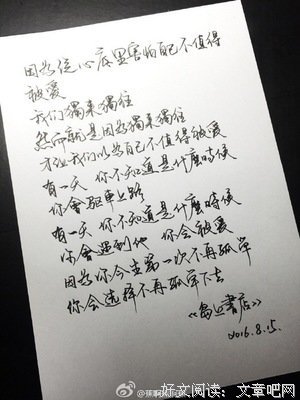 因为從心底里害怕自己不值得
被爱
我们獨来獨往
然而就是因为獨来獨往
才让我们以为自己不值得被爱
有一天 你不知道是什麼時候
你會驱車上路
有一天 你不知道是什麼時候
你會遇到他 你会被爱
因为你今生第一次不再孤单
你会选择不再孤单下去
《岛上書店》
2016.8.15.
好文阅读：文章吧网